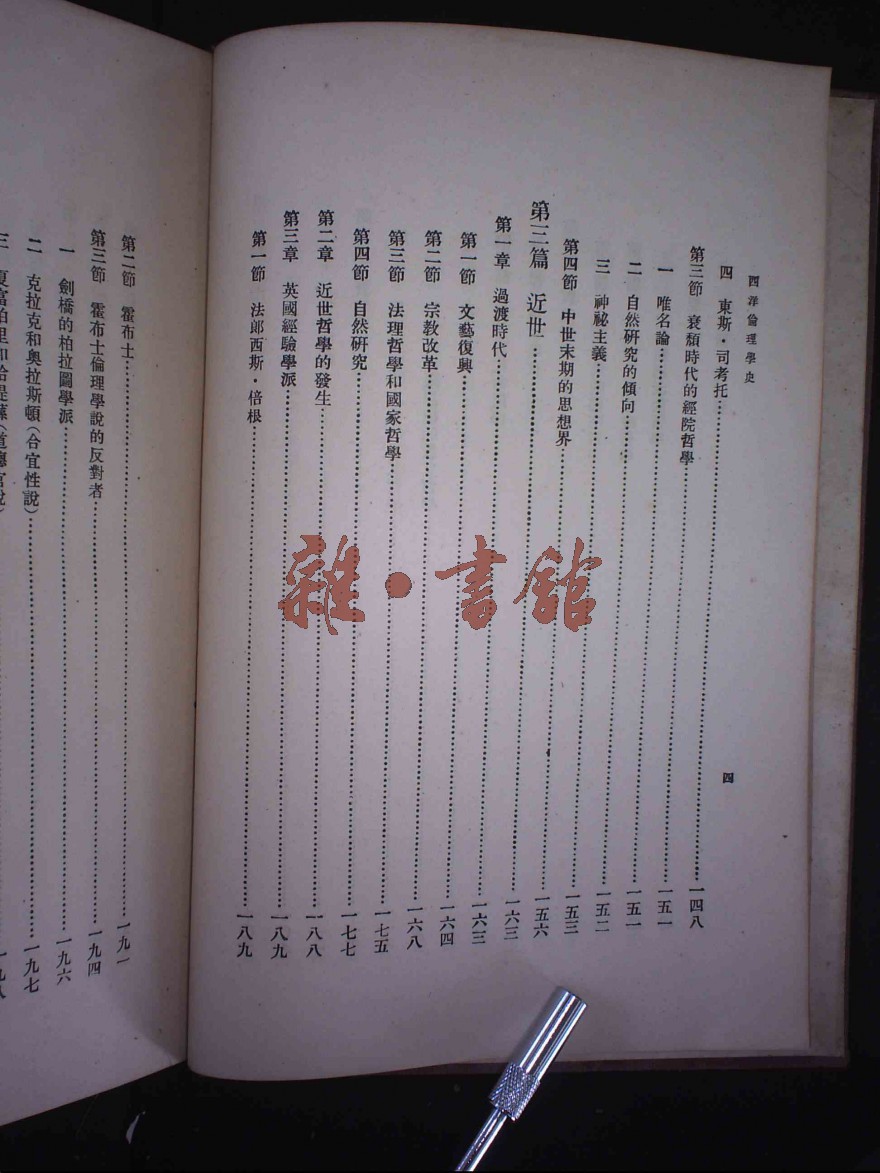 西洋倫理學史
四 東斯・司考托……一四八
第三節 衰頹時代的經院哲學……一五一
一 唯名論……一五一
二 自然研究的傾向……一五二
三 神祕主義……一五三
第四節 中世末期的思想界……一五六
第三篇 近世……一六三
第一章 過渡時代……一六三
第一節 文藝復興……一六四
第二節 宗教改革……一六八
第三節 法理哲學和國家哲學……一七五
第四節 自然研究……一七七
第二章 近世哲學的發生……一八八
第三章 英國經驗學派……一八九
第一節 法郎西斯・倍根……一八九
四
第二節 霍布士……一九一
第三節 霍布士倫理學說的反對者……一九四
一 劍橋的柏拉圖學派……一九六
二 克拉克和奧拉斯頓（合宜性說）……一九七
雜・書館